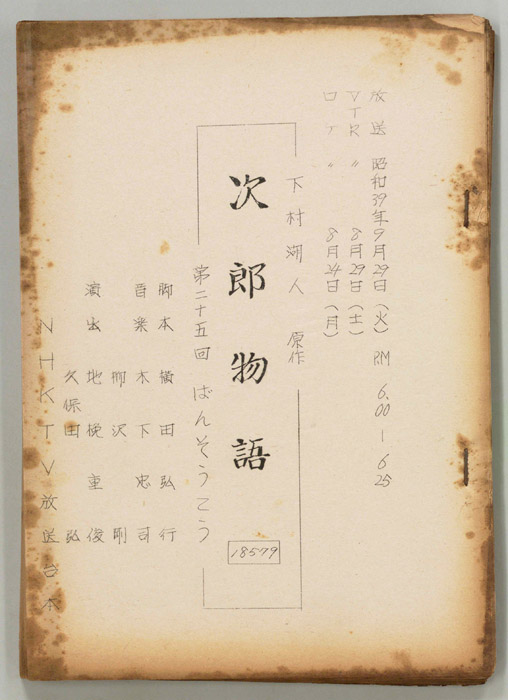 放送 昭和39年9月29日（火）PM 6.00－6.25
VTR 〃 8月29日（土）
ロT 〃 8月24日（月）
下村湖人 原作
次郎物語
18579
第二十五回 ばんそうこう
脚本 横田弘行
音楽 木下忠司
柳沢剛
演出 地挽重俊
久保田弘
NHKTV放送台本